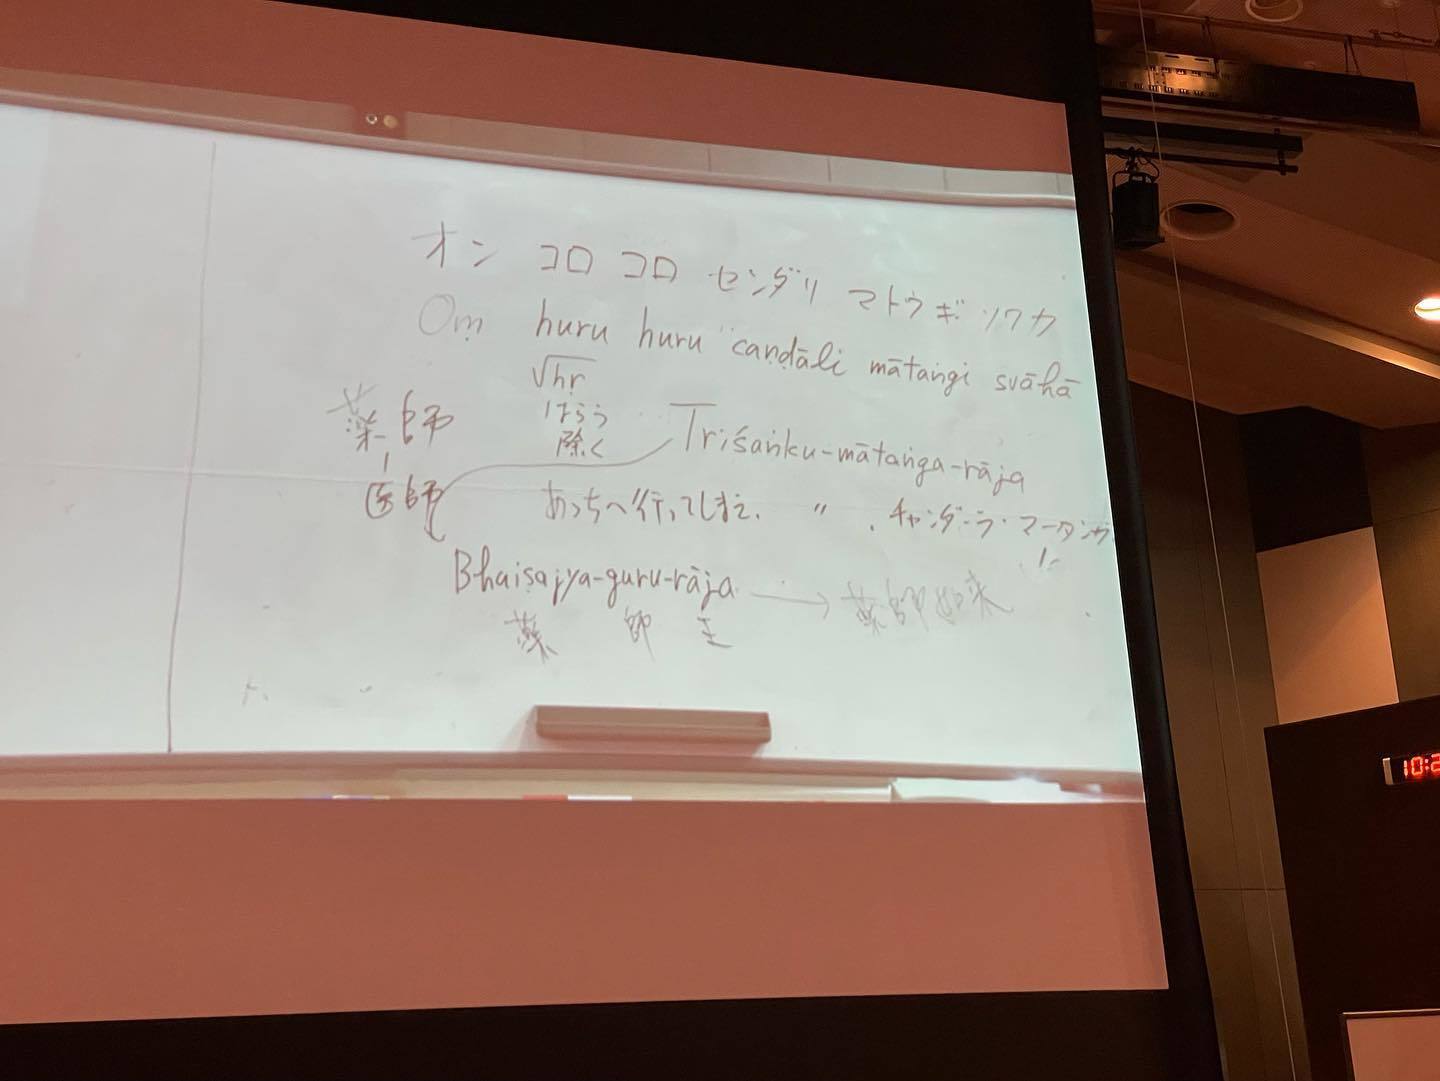 オン コロ コロ センダリ マトウギ ソワカ
Oṃ huru huru caṇḍāli mātaṅgi svāhā
√hṛ
はらう
除く
薬師
医師
Triśaṅku-mātaṅga-rāja
あっちへ行ってしまえ. 〃 . チャンダーラ・マータンガ
Bhaiṣajya-guru-rāja → 薬師如来
薬 師 王
10:2